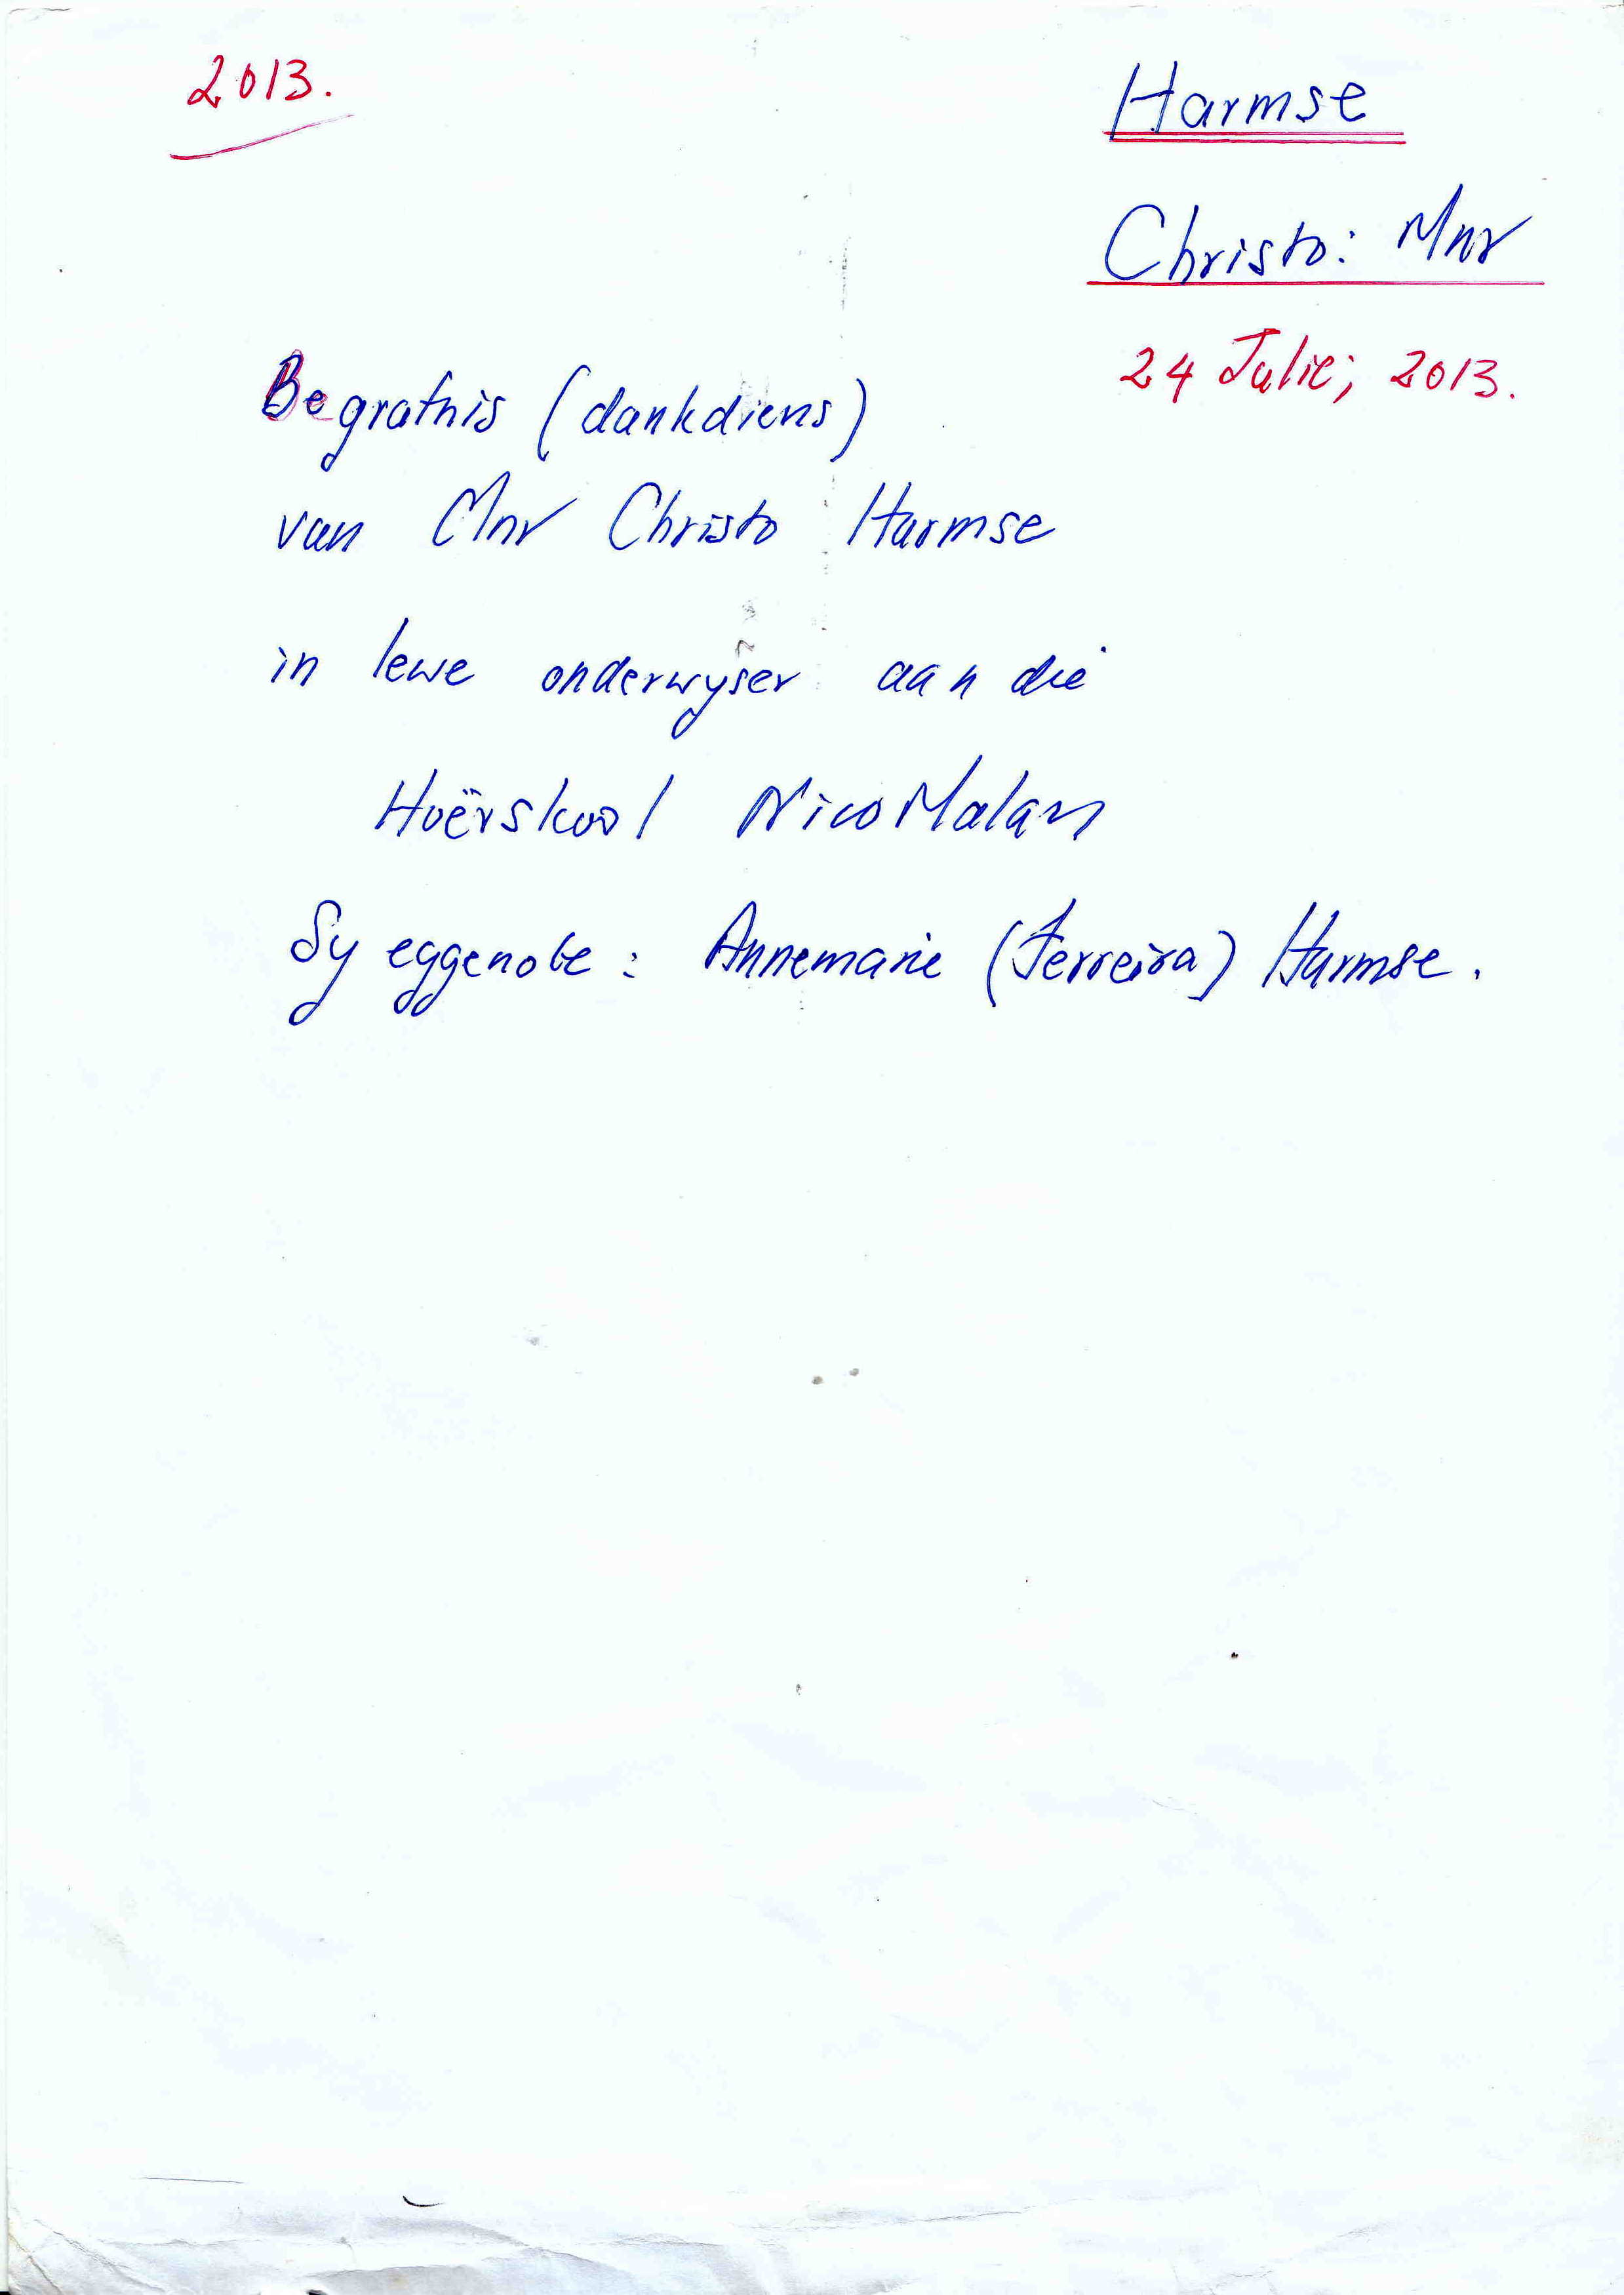 2013.
Harmse
Christo: Mnr
24 Julie; 2013.
Begrafnis (dankdiens)
van Mnr Christo Harmse
in lewe onderwyser aan die
Hoërskool Nico Malan
Sy eggenote: Annemarie (Ferreira) Harmse.